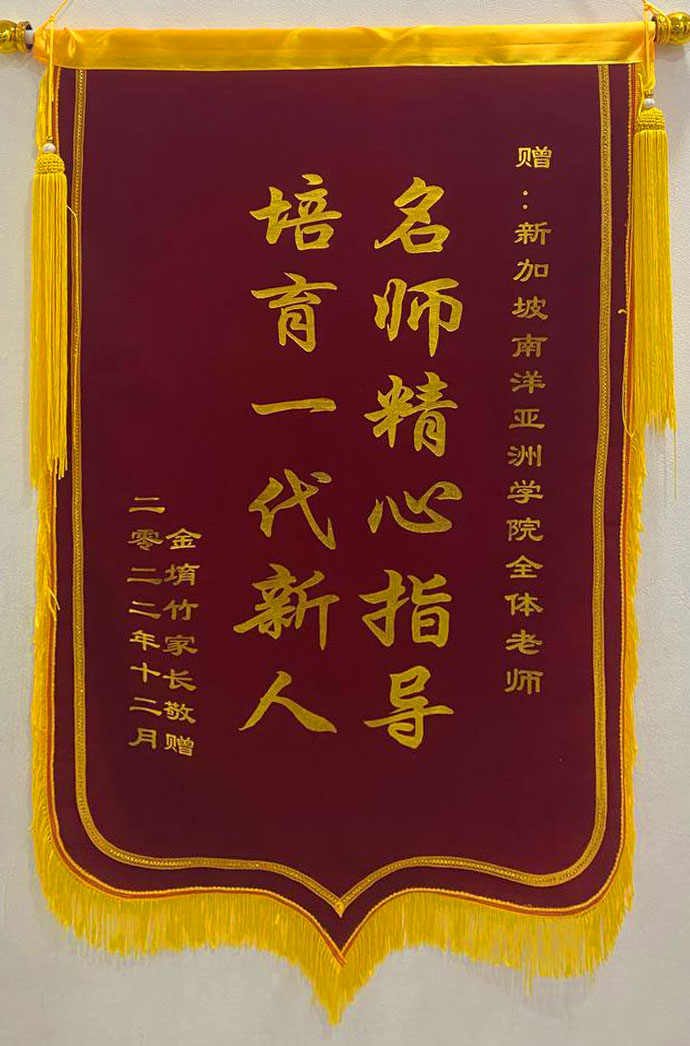 赠：新加坡南洋亚洲学院全体老师
名师精心指导
培育一代新人
金堉竹家长敬赠
二零二二年十二月